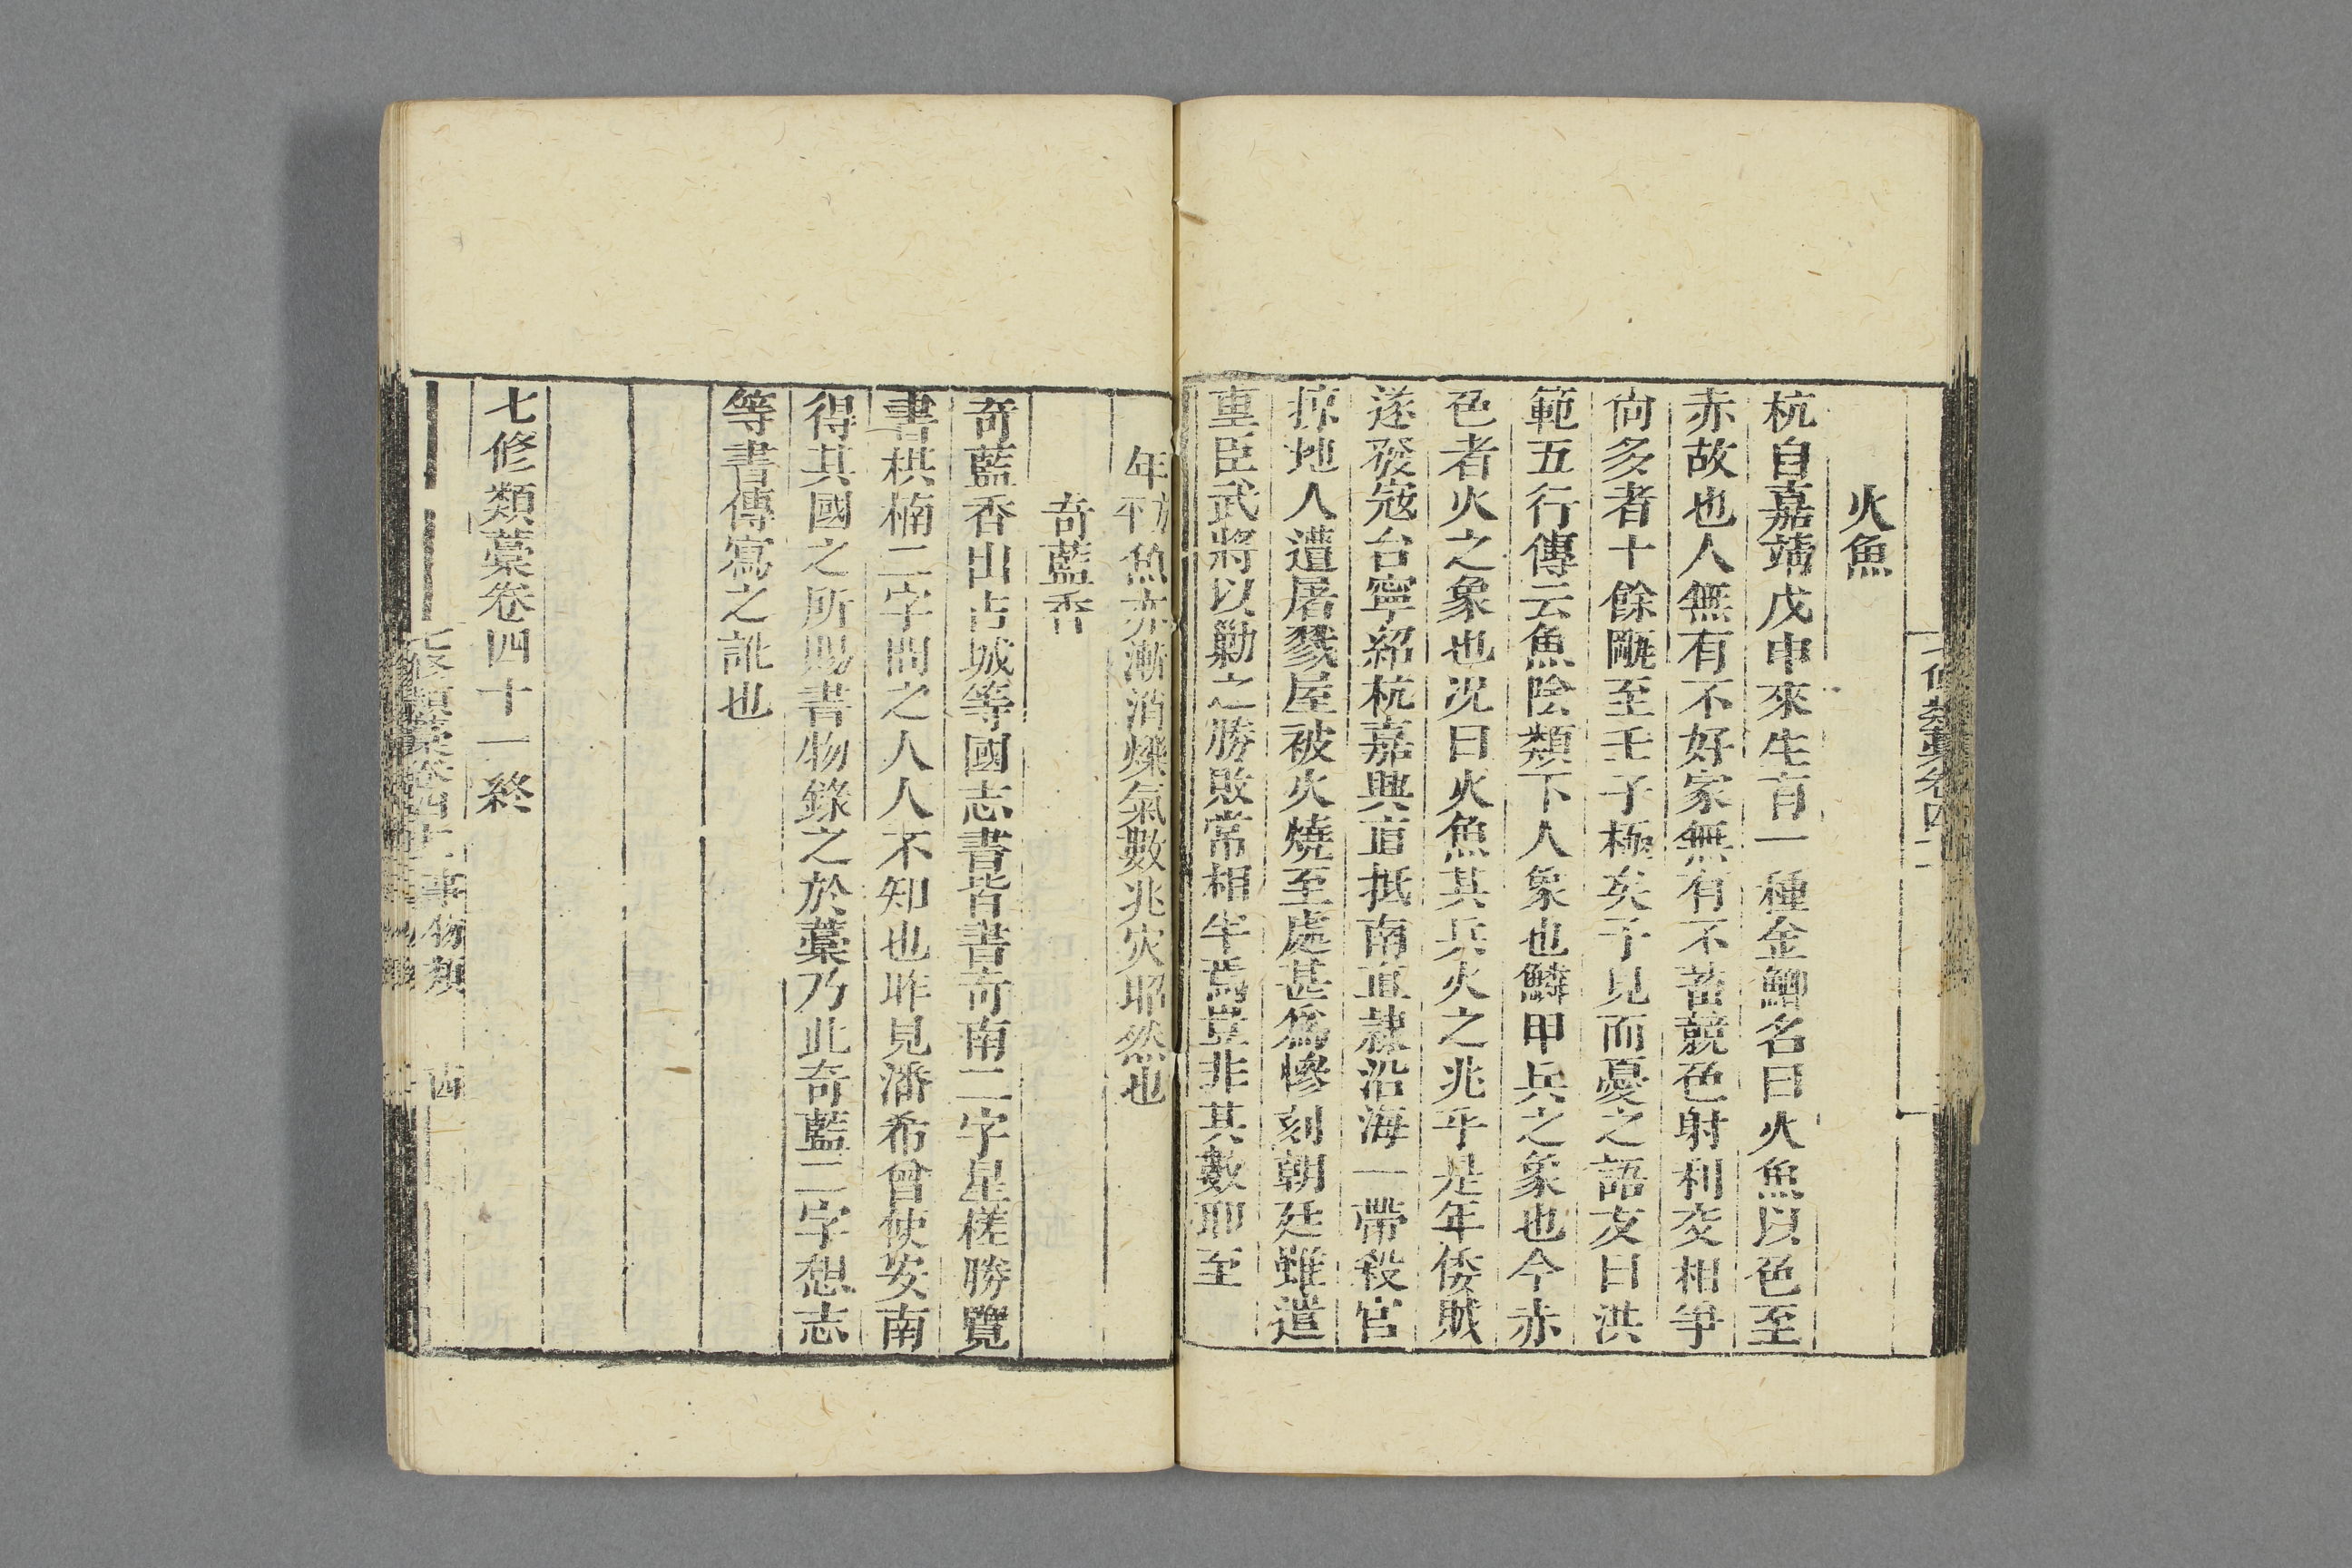 火魚
杭自嘉靖戊申來生育一種金鯽名曰火魚以色至
赤故也人無有不好家無有不蓄競色射利交相爭
尙多者十餘甌至壬子極矣予見而憂之語友曰洪
範五行傳云魚陰類下人象也鱗甲兵之象也今赤
色者火之象也况曰火魚其兵火之兆乎是年倭賊
遂發寇台寧紹杭嘉興直抵南直隷沿海一帶殺官
掠地人遭屠戮屋被火燒至處甚爲慘刻朝廷雖遣
重臣武將以勦之勝敗常相半焉豈非其數耶至
年方平魚亦漸消爍氣數兆灾昭然也
奇藍香
奇藍香出占城等國志書皆書奇南二字星槎勝覽
書棋楠二字問之人人不知也昨見潘希曾使安南
得其國之所賜書物錄之於藁乃此奇藍二字想志
等書傳寫之訛也
七修類藁卷四十一終
七修類藁卷四十一 事物類